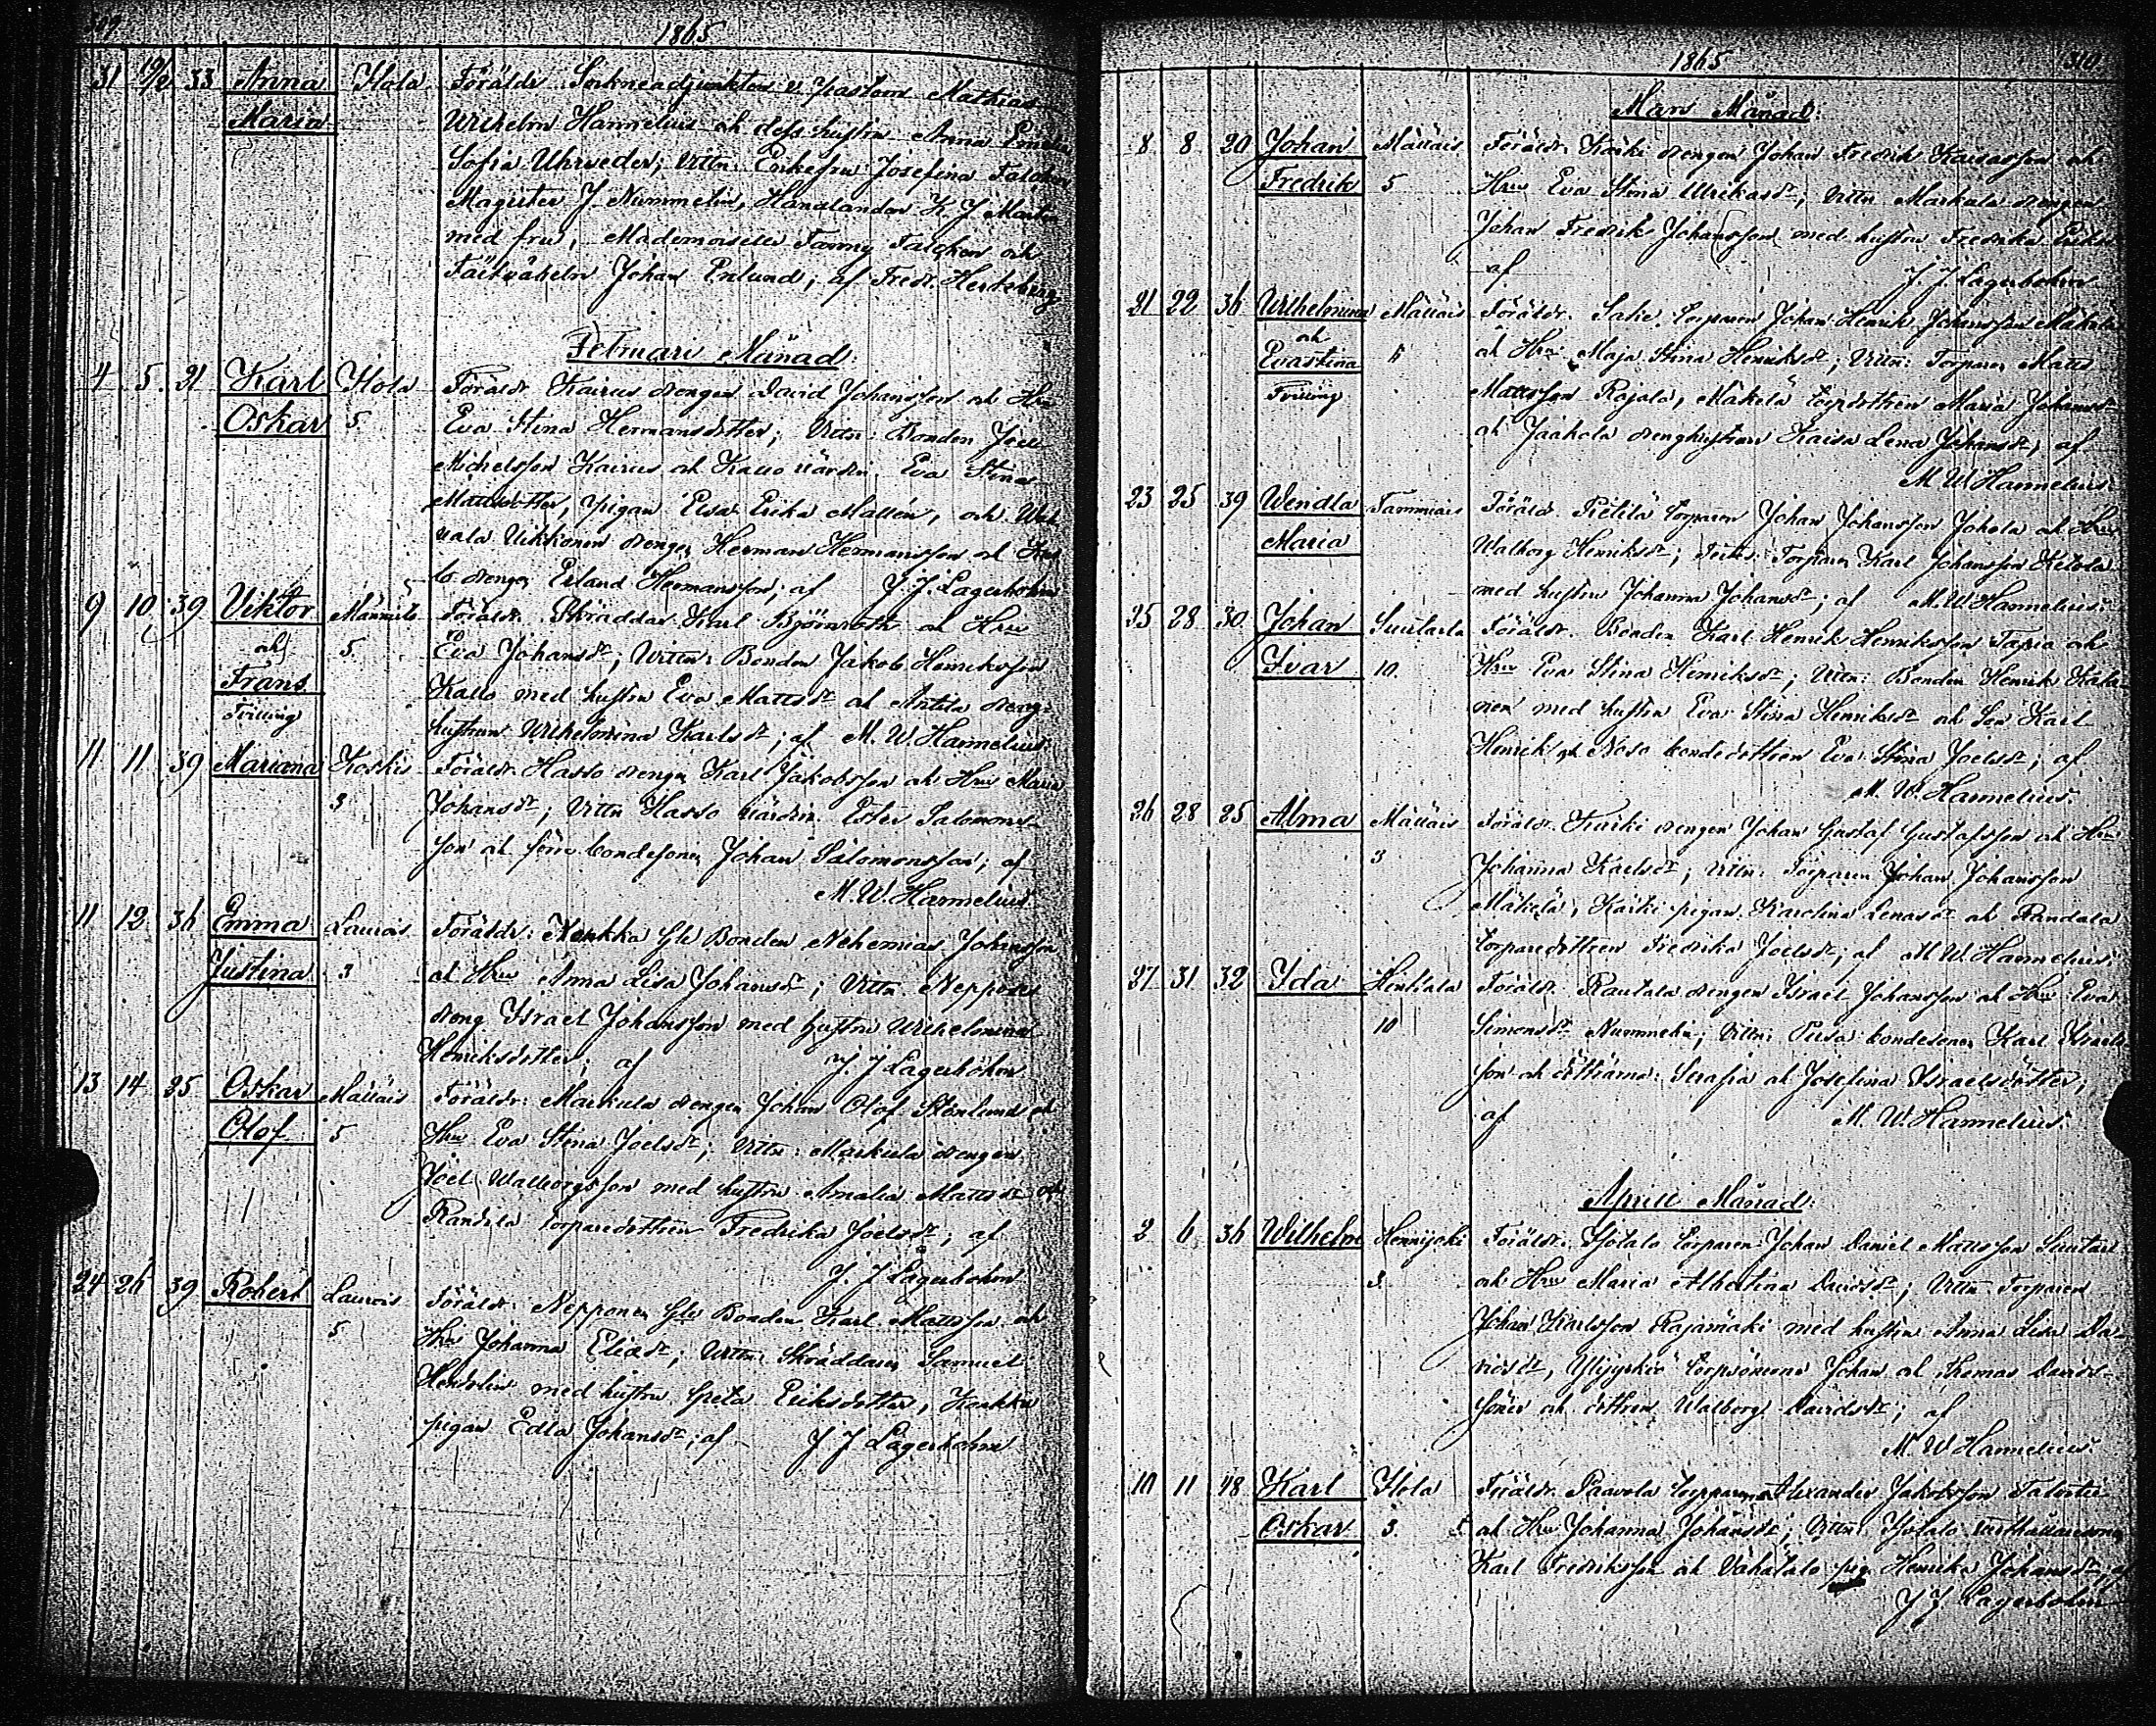 309
1865
31 19/2 33 Anna Ilola Föräldr. Sockneadjunkten v. Pastorn Mathias
Maria Wilhelm Hannelius och dess hustru Anna Emelie
Sofia Uhrveder; Vittn: Enkefru Josefina Falckon
Magister J. Nummelin, Handlanden K. J.
med fru, Mademoiselle Fanny Falckon och
Johan Enlund; af Fredr. Hertzberg
Februari Månad:
4 5 21 Karl Ilola Föräldr. Kairus drengen David Johansson och Hru
Oskar 5 Eva Stina Hermansdotter; Vittn: Bonden Joel
Michelsson Kairus och Kallo värdin: Eva Stina
Mattsdotter, pigan Elsa Erika Mallén, och
Uikkonen drengen Herman Hermansson och
drengen Erland Hermansson; af J. J. Lagerbohm
9 10 39 Viktor Männistö Föräldr. Skräddar Karl Björnroth och Hru
och 5. Eva Johansdr; Vittn: Bonden Jakob Henriksson
Frans Kallo med hustru Eva Mattsdr och Antila dreng-
Tvilling hustrun Wilhelmina Karlsdr; af M. W. Hannelius.
11 11 39 Mariana Koskis Föräldr. Hasso drengen Karl Jakobsson och Hru Maria
3 Johansdr; Vittn Hasso värdin Ester Salomons-
son och förre bondesonen Johan Salomonsson; af
M. W. Hannelius.
11 12 36 Emma Laurois Föräldr: Kenkka Gle Bonden Nehemias Johansson
Justina 3 och Hru Anna Lisa Johansdr; Vittn. Nepponen
dreng Israel Johansson med hustru Wilhelmina
Henriksdotter; af J. J Lagerbohm
13 14 25 Oskar Mälläis Föräldr: Markula drengen Johan Olof Stenlund och
Olof 5 Hru Eva Stina Joelsdr; Vittn: Markula drengen
Joel Walborgsson med hustru Amalia Mattsdr och
Randila torparedottren Fredrika Joelsdr; af
J. J Lagerbohm
24 26 39 Robert Laurois Föräldr. Nepponen Gle Bonden Karl Mattsson och
5 Hru Johanna Eliedr; Vittn: Skräddaren Samuel
med hustru Greta Eriksdotter, Kenkka
pigan Edla Johansdr; af J J Lagerbohm
1865
310
Mars Månad:
8 8 20 Johan Mälläis Föräldr. Kaiki drengen Johan Fredrik Kaisasson och
Fredrik 5 Hru Eva Stina Ulrikasdr; Vittn Markula drengen
Johan Fredrik Johansson med hustru Fredrika
af J. J. Lagerbohm
21 22 36 Wilhelmina Mälläis Föräldr. torparen Johan Henrik Johansson Mäkelä
och och Hru Maja Stina Henriksdr; Vittn: Torparen Matts
Evastina Mattsson Rajala, Mäkelä torpdottren Maria Johansdr
Tvilling och Jaakola drenghustrun Kaisa Lena Johansdr; af
M W. Hannelius.
23 25 39 Wendla Tammiais Föräldr. Pietilä torparen Johan Johansson Johola och Hru
Maria Walborg Henriksdr; Torparen Karl Johansson Ketola
med hustru Johanna Johansdr; af M. W. Hannelius.
25 28 30 Johan Suutarla Föräldr. Bonden Karl Henrik Henriksson Tapia och
Ivar 10. Hru Eva Stina Henriksdr; Vittn: Bonden Henrik
med hustru Eva Stina Henriksdr och Son Karl
Henrik och Naso bondedottren Eva Stina Joelsdr; af
M. W. Hannelius.
26 28 25 Alma Mälläis Föräldr. Kaiki drengen Johan Gustaf Gustafsson och Hru
3 Johanna Karlsdr; Vittn: Torparen Johan Johansson
Mäkelä, Kaiki pigan Karolina Lenasdr och Randala
torparedottren Fredrika Joelsdr; af M. W. Hannelius.
27 31 32 Ida Hintsala Föräldr. Rautala drengen Israel Johansson och Hru Eva
10 Simonsdr Nummela; Vittn: bondesonen Karl Israels-
son och döttrarna: Serafia och Josefina Israelsdötter;
af M. W. Hannelius.
April Månad:
2 6 36 Wilhelm Hennijoki Föräldr. Isotalo torparen Johan Daniel Mattsson Suutari
3. och Hru Maria Albertina Davidsdr; Vittn Torparen
Johan Karlsson Rajamäki med hustru Anna Lisa Da-
vidsdr, torpsönerna Johan och Thomas Davids-
söner och dottren Walborg Davidsdr; af
M. W Hannelius.
10 11 48 Karl Ilola Föräldr. Paavola torparen Alexander Jakobsson
Oskar 3. och Hru Johanna Johansdr; Vittn: Isotalo
Karl Fredriksson och Vähätalo pig. Henrika Johansdr; af
J J. Lagerbohm